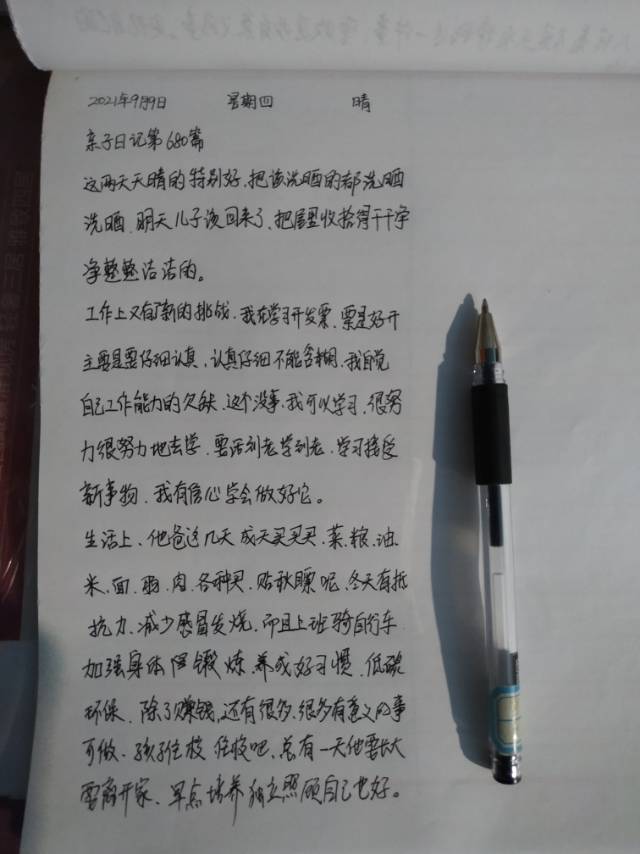 2021年9月9日 星期四 晴
亲子日记第680篇
这两天天晴的特别好,把该洗晒的都洗晒
洗晒.明天儿子该回来了、把屋里收拾得干干净
净整整洁洁的。
工作上又有了新的挑战.我在学习开发票、票是好开
主要是要仔细认真,认真仔细不能含糊、我自觉
自己工作能力的欠缺、这个没事、我可以学习、很努
力很努力地去学、要活到老学到老、学习接受
新事物、我有信心学会做好它。
生活上、他爸这几天成天买买买、菜、粮、油、
米、面、肉、各种买、贴秋膘呢、冬天有抵
抗力、减少感冒发烧、而且上班骑自行车
加强身体锻炼、养成好习惯、低碳
环保、除了赚钱、还有很多、很多有意义的事
可做、孩子住校住校吧、总有一天他要长大
要离开家、早点培养独立照顾自己也好。